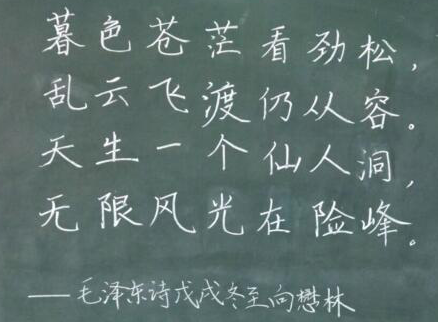 暮色苍茫看劲松，
乱云飞渡仍从容。
天生一个仙人洞，
无限风光在险峰。
——毛泽东诗戊戌冬至向懋林